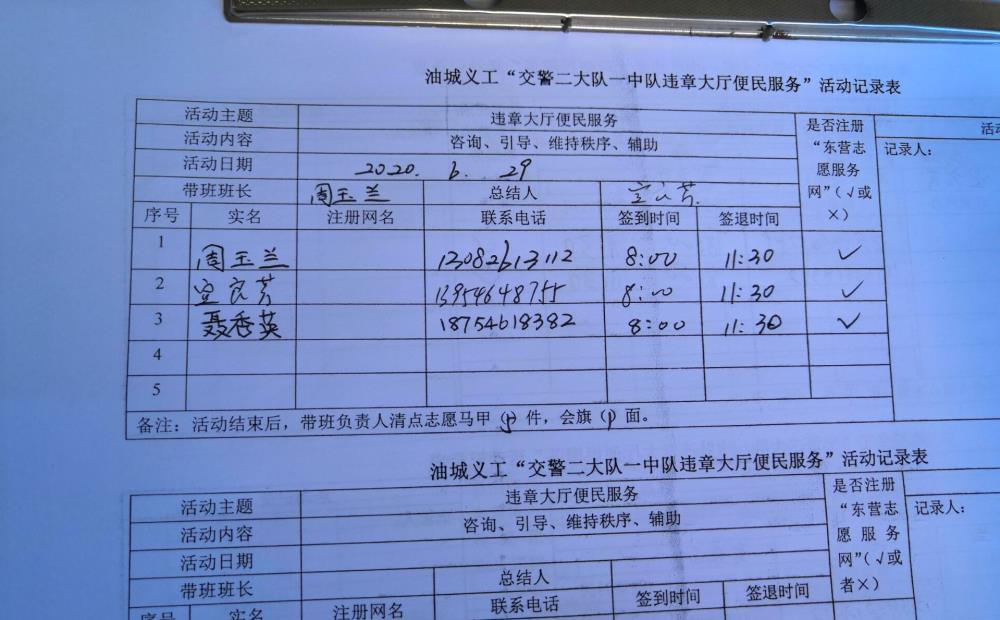 油城义工“交警二大队一中队违章大厅便民服务”活动记录表
活动主题 违章大厅便民服务 是否注册“东营志愿服务网”（√或×）
活动内容 咨询、引导、维持秩序、辅助 记录人：
活动日期 2020. 6. 29
带班班长 周玉兰 总结人
序号 实名 注册网名 联系电话 签到时间 签退时间
1 周玉兰 13082613112 8:00 11:30 ✓
2 13954648755 8:00 11:30 ✓
3 聂香英 18754618382 8:00 11:30 ✓
4
5
备注：活动结束后，带班负责人清点志愿马甲（ ）件，会旗（1）面。
油城义工“交警二大队一中队违章大厅便民服务”活动记录表
活动主题 违章大厅便民服务 是否注册“东营志愿服务网”（√或者×）
活动内容 咨询、引导、维持秩序、辅助 记录人：
活动日期
带班班长 总结人
序号 实名 注册网名 联系电话 签到时间 签退时间